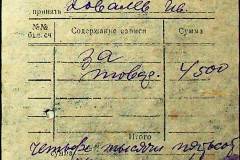 принять Ковалев Ив.
№№ Содержание записи Сумма
бал. сч.
за
товар. 4500
Итого
сумма
четыре тысячи пятьсот